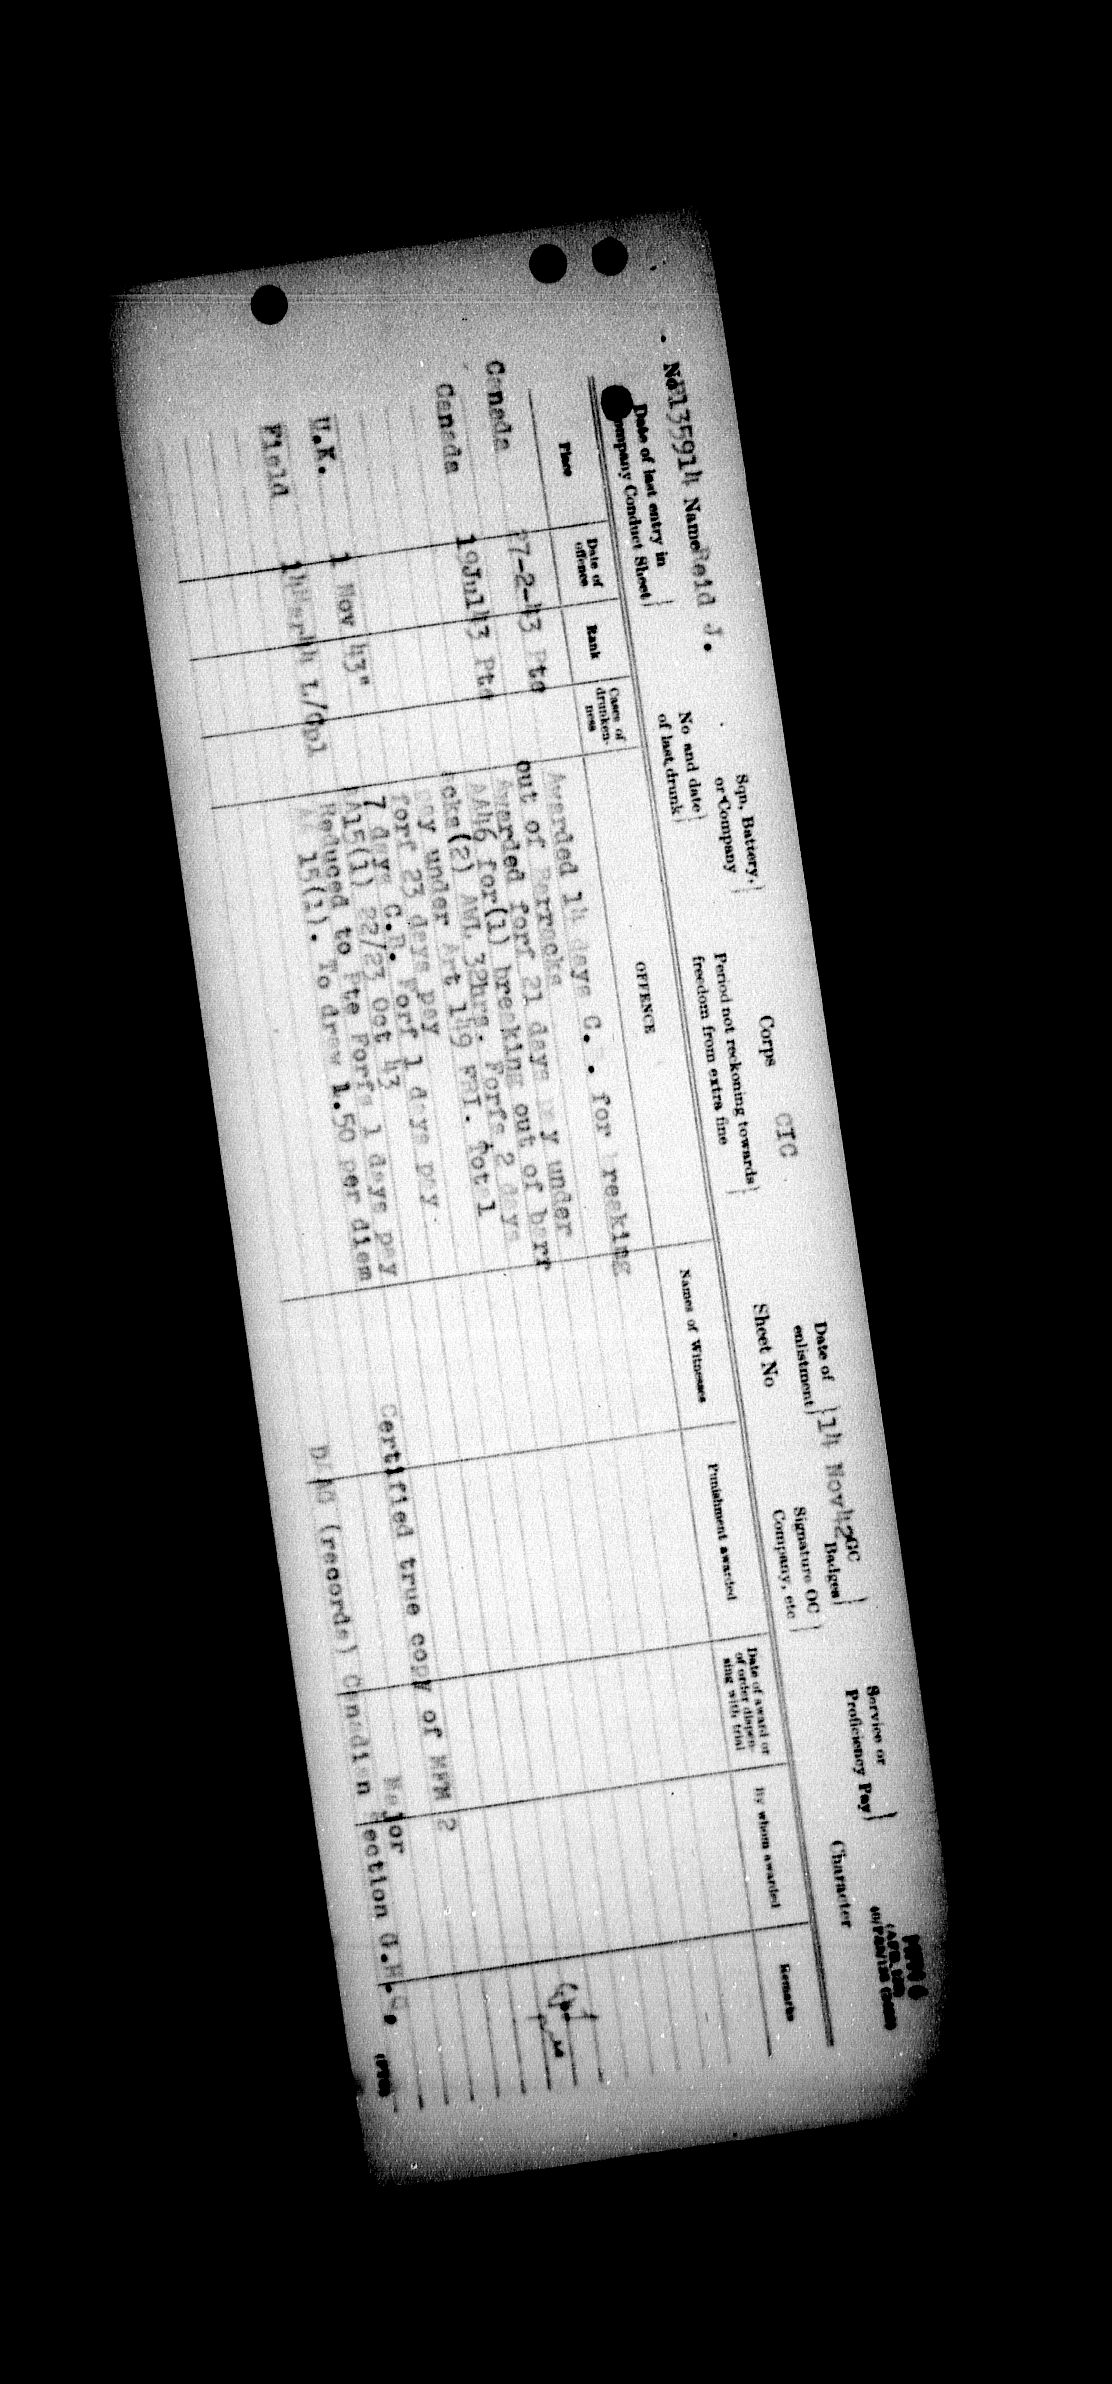 MFM 6
No E135914 Name Reid J.
Sqn, Battery, or Company
Corps CIC
Date of enlistment 14 Nov 42
GC Badges
Service or Proficiency Pay
Date of last entry in Company Conduct Sheet
No and date of last drunk
Period not reckoning towards freedom from extra fine
Sheet No
Signature OC Company, etc
Character
Place
Date of offence
Rank
Cases of drunkenness
OFFENCE
Names of Witnesses
Punishment awarded
Date of award or of order dispensing with trial
By whom awarded
Remarks
Canada 27-2-43 Pte Awarded 14 days C. . for breaking
out of Barracks
Canada 19Jul43 Pte Awarded forf 21 days pay under
AA46 for(1) breaking out of barr
acks(2) AWL 32hrs. Forfs 2 days
pay under Art 149 FRI. Total
forf 23 days pay
U.K. 1 Nov 43" 7 days C.B. Forf 1 days pay
AA15(1) 22/23 Oct 43
Field 14Mar44 L/Cpl Reduced to Pte Forfs 1 days pay
15(1). To draw 1.50 per diem
Certified true copy of MFM 2
Major
DAAG (records) Canadian Section G.H.Q.
(PTO)